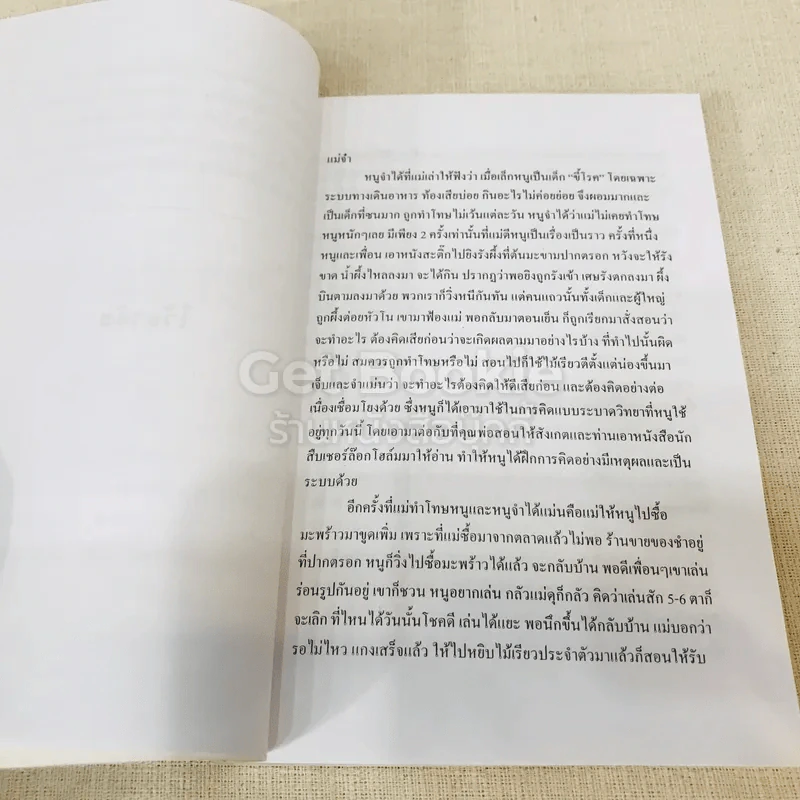 แม่จ๋า
หนูจำได้ที่แม่เล่าให้ฟังว่า เมื่อเล็กหนูเป็นเด็ก “ขี้โรค” โดยเฉพาะ
ระบบทางเดินอาหาร ท้องเสียบ่อย กินอะไรไม่ค่อยย่อย จึงผอมมากและ
เป็นเด็กที่ซนมาก ถูกทำโทษไม่เว้นแต่ละวัน หนูจำได้ว่าแม่ไม่เคยทำโทษ
หนูหนักๆเลย มีเพียง 2 ครั้งเท่านั้นที่แม่ตีหนูเป็นเรื่องเป็นราว ครั้งที่หนึ่ง
หนูและเพื่อน เอาหนังสะติ๊กไปยิงรังผึ้งที่ต้นมะขามปากตรอก หวังจะให้รัง
ขาด น้ำผึ้งไหลลงมา จะได้กิน ปรากฏว่าพอยิงถูกรังเข้า เศษรังตกลงมา ผึ้ง
บินตามลงมาด้วย พวกเราก็วิ่งหนีกันทัน แต่คนแถวนั้นทั้งเด็กและผู้ใหญ่
ถูกผึ้งต่อยหัวโน เขามาฟ้องแม่ พอกลับมาตอนเย็น ก็ถูกเรียกมาสั่งสอนว่า
จะทำอะไร ต้องคิดเสียก่อนว่าจะเกิดผลตามมาอย่างไรบ้าง ที่ทำไปนั้นผิด
หรือไม่ สมควรถูกทำโทษหรือไม่ สอนไปก็ใช้ไม้เรียวตีตั้งแต่น่องขึ้นมา
เจ็บและจำแม่นว่า จะทำอะไรต้องคิดให้ดีเสียก่อน และต้องคิดอย่างต่อ
เนื่องเชื่อมโยงด้วย ซึ่งหนูก็ได้เอามาใช้ในการคิดแบบระบาดวิทยาที่หนูใช้
อยู่ทุกวันนี้ โดยเอามาต่อกับที่คุณพ่อสอนให้สังเกตและท่านเอาหนังสือนัก
สืบเชอร์ล๊อกโฮล์มมาให้อ่าน ทำให้หนูได้ฝึกการคิดอย่างมีเหตุผลและเป็น
ระบบด้วย
อีกครั้งที่แม่ทำโทษหนูและหนูจำได้แม่นคือแม่ให้หนูไปซื้อ
มะพร้าวมาขูดเพิ่ม เพราะที่แม่ซื้อมาจากตลาดแล้วไม่พอ ร้านขายของชำอยู่
ที่ปากตรอก หนูก็วิ่งไปซื้อมะพร้าวได้แล้ว จะกลับบ้าน พอดีเพื่อนๆเขาเล่น
ร่อนรูปกันอยู่ เขาก็ชวน หนูอยากเล่น กลัวแม่ดุก็กลัว คิดว่าเล่นสัก 5-6 ตาก็
จะเลิก ที่ไหนได้วันนั้นโชคดี เล่นได้แยะ พอนึกขึ้นได้กลับบ้าน แม่บอกว่า
รอไม่ไหว แกงเสร็จแล้ว ให้ไปหยิบไม้เรียวประจำตัวมาแล้วก็สอนให้รับ
Get Bookie
ร้านหนังสือบุ๊คกี้